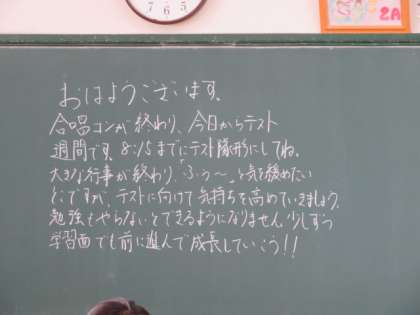 7 6 5
2A
おはようございます。
合唱コンが終わり、今日からテスト
週間です。8:15までにテスト隊形にしてね。
大きな行事が終わり「ふぅ～」と気を緩めたい
とこですが、テストに向けて気持ちを高めていきましょう。
勉強もやらないとできるようになりません。少しずつ
学習面でも前に進んで成長していこう!!